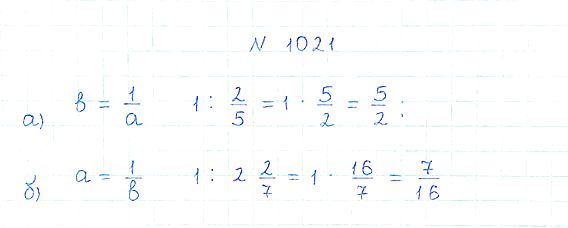 N 1021
а) в = 1/а 1 : 2/5 = 1 · 5/2 = 5/2;
б) а = 1/в 1 : 2 2/7 = 1 · 16/7 = 7/16